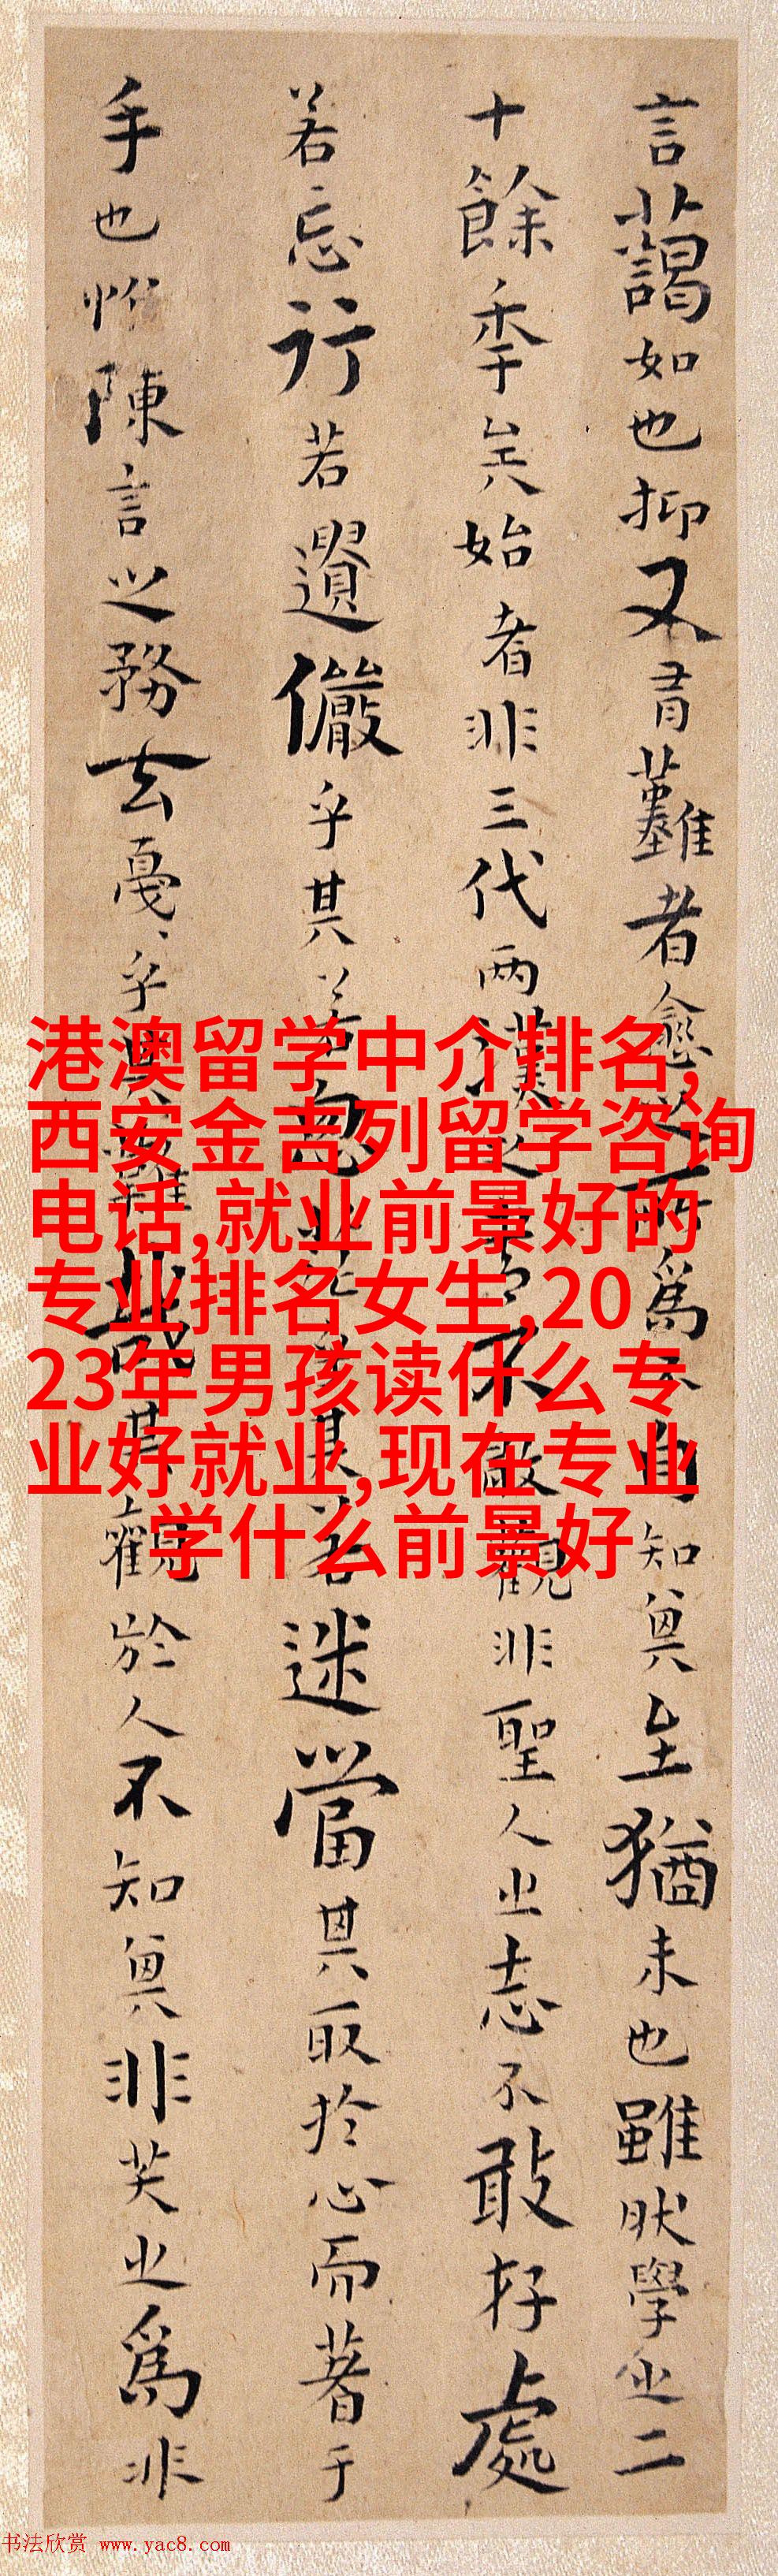 言藹如也抑又有難者愈之所為不自知其至猶未也雖然學之二
十餘秊矣始者非三代两漢之書不敢觀非聖人之志不敢存處
若忘行若遺儼乎其若思茫乎其若迷當其取於心而著于
手也惟陳言之務去戛戛乎其難哉其觀於人不知其非笑之為非
港澳留学中介排名,
西安金吉列留学咨询
电话,就业前景好的
专业排名女生,20
23年男孩读什么专
业好就业,现在专业
学什么前景好
书法欣赏 www.yac8.com